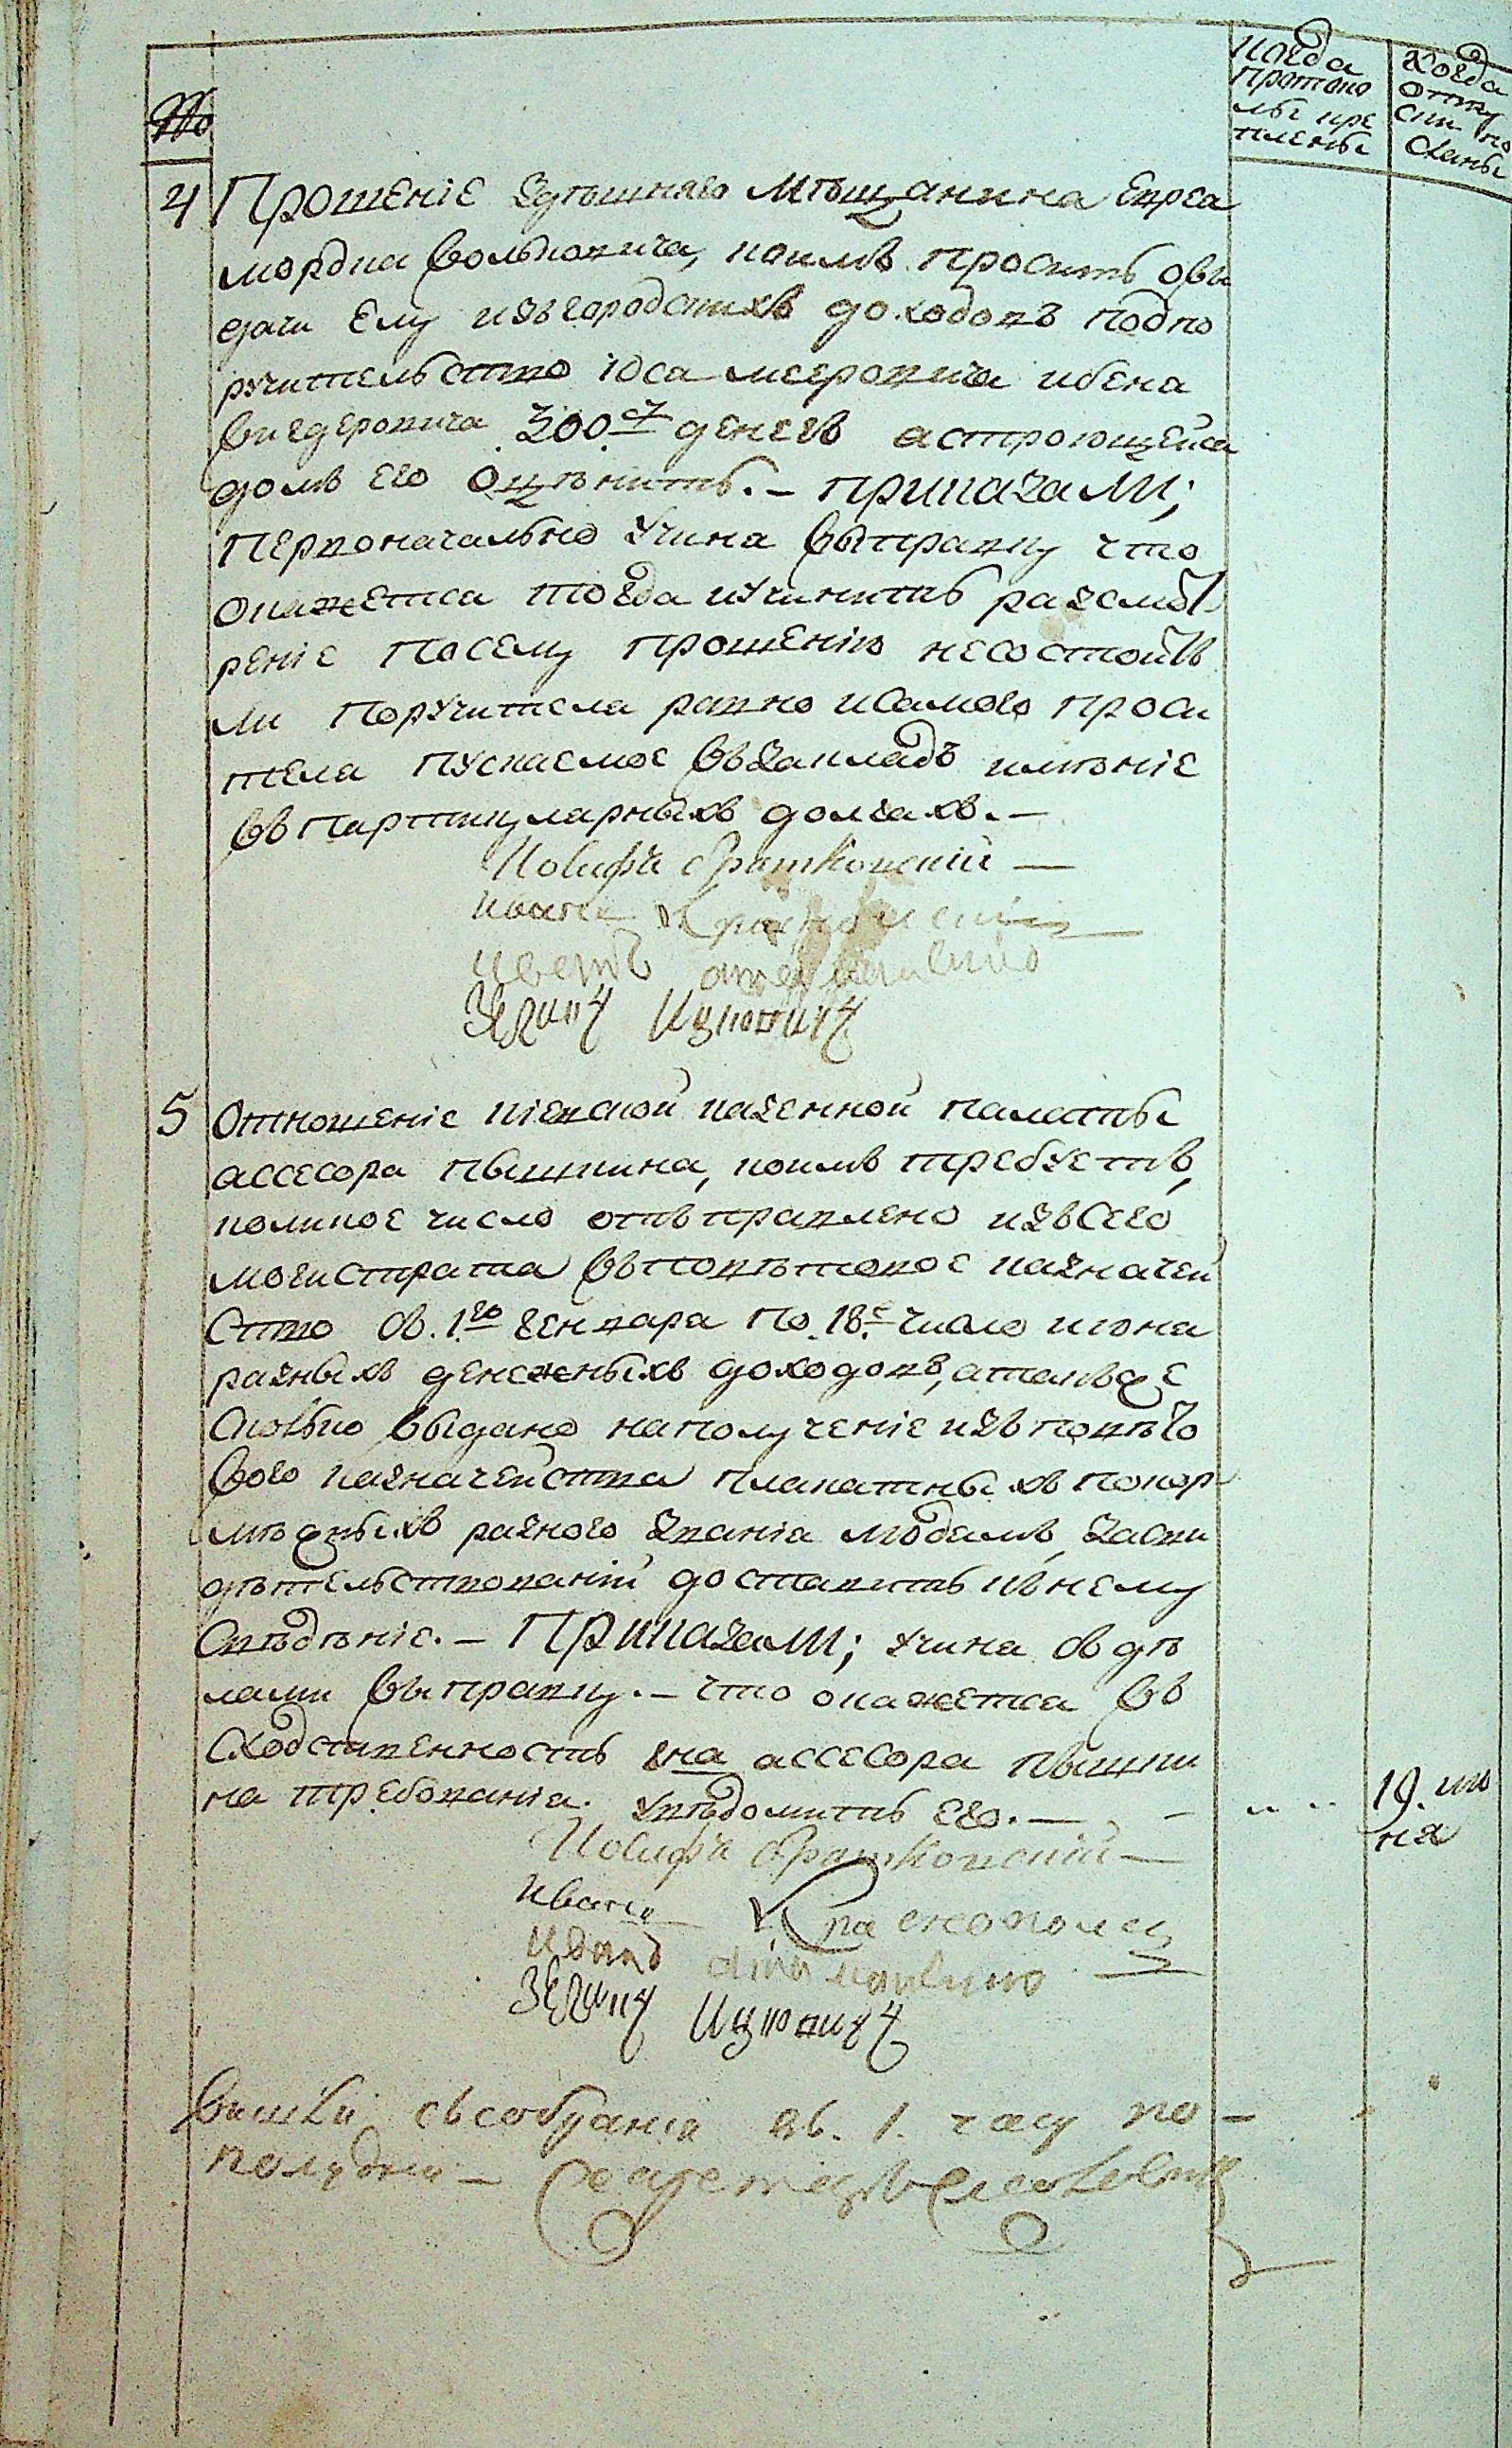 №
когда
протоко
лы кре
плены
когда
отпу
ски по
сланы
4 Прошеніе здѣшняго мѣщанина Еврея
мордка вольковича, коимъ проситъ овы
дачи Ему изъ городскихъ доходовъ подпо
ручительство іоса мееровича ибена
вигдеровича 300 денегъ астроющейся
домъ его Оцѣнить. – приказали;
первоначально учиня выправку что
окажется тогда иучинить разсмот
реніе посему прошенію несостоитъ
ли поручителя равно исамого проси
теля пускаемое въ закладъ имѣніе
въ партикулярныхъ долгахъ. –
Иосифъ братковскій –
Иванъ
Изковичъ
5 Отношеніе кіевской казенной палаты
ассесора пышкина, коимъ требуетъ,
коликое число отъправлено изъсего
могистрата въповѣтовое казначей
ство съ. 1го генваря по. 18е число июня
разныхъ денежныхъ доходовъ, атакъже
сколько выдано наполученіе изъ повѣто
вого казначейства плакатныхъ покор
мѣжныхъ разного званія людямъ, засви
дѣтельствованій доставить къ нему
Свѣдѣніе. – Приказали; учиня съ дѣ
лами выправку. – что окажется въ
Сходственность гна ассесора пышки
на требованія. увѣдомить его. – 19. ию
ня
Иосифъ братковскій –
Иванъ
Изковичъ
вышли съ собранія въ. 1. часу по
полудни –